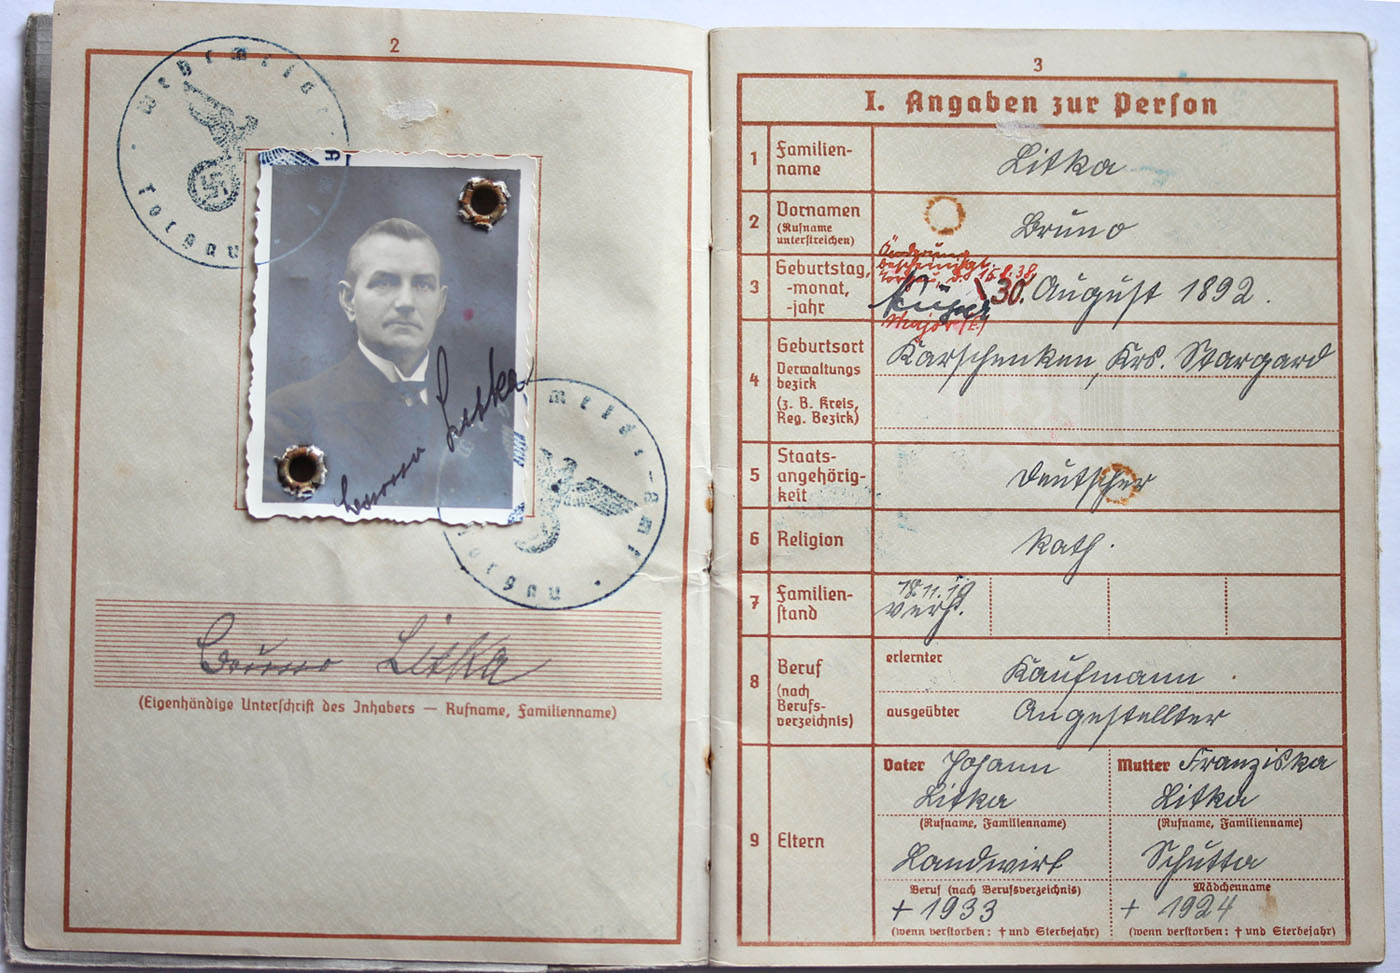 2
Wehrmeldeamt
Torgau
Bruno Litka
Wehrmeldeamt
Torgau
Bruno Litka
(Eigenhändige Unterschrift des Inhabers — Rufname, Familienname)
3
I. Angaben zur Person
1 Familien-
name
Litka
2 Vornamen
(Rufname
unterstreichen)
Bruno
3 Geburtstag,
-monat,
-jahr
Änderung
bescheinigt.
Torgau, d. 15.8.38
30. August 1892.
Major (E)
4 Geburtsort
Verwaltungs
bezirk
(z. B. Kreis,
Reg. Bezirk)
Karschenken, Krs. Stargard
5 Staats-
angehörig-
keit
Deutscher
6 Religion
kath.
7 Familien-
stand
18.11.19
verh.
8 Beruf
(nach
Berufs-
verzeichnis)
erlernter Kaufmann
ausgeübter Angestellter
9 Eltern
Vater Johann
Litka
(Rufname, Familienname)
Landwirt
Beruf (nach Berufsverzeichnis)
+ 1933
(wenn verstorben: † und Sterbejahr)
Mutter Franziska
Litka
(Rufname, Familienname)
Schutta
Mädchenname
+ 1924
(wenn verstorben: † und Sterbejahr)